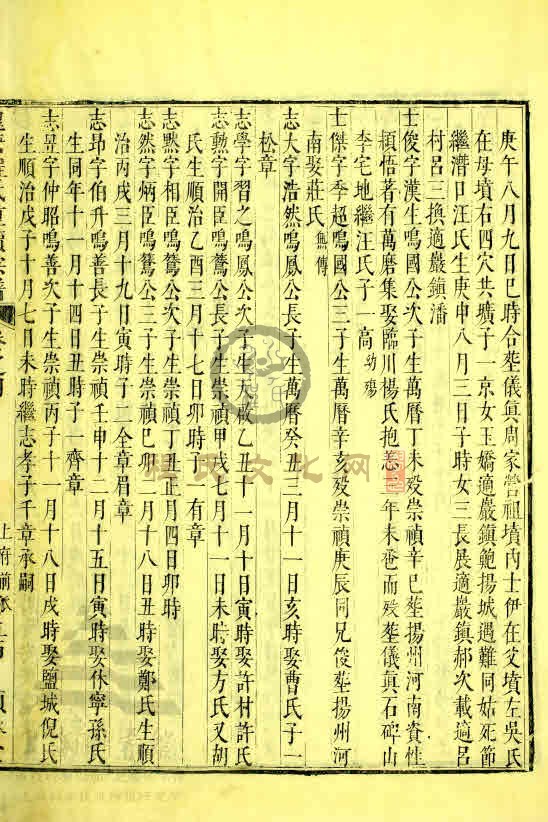 庚午八月九日巳時合塟儀眞周家營祖墳內士伊在父墳左吳氏
在母墳右四穴共壙子一京女玉嬌適巖鎮鮑揚城遇難同姑死節
繼濳口汪氏生庚申八月三日子時女三長展適巖鎮郝次載適呂
村呂三換適巖鎮潘
士俊字漢生鳴國公次子生萬曆丁未歿崇禎辛巳塟揚州河南資性
穎悟著有萬磨集娶臨川楊氏抱恙 年未 而歿塟儀眞石碑山
李宅地繼汪氏子一高幼殤
士傑字季超鳴國公三子生萬曆辛亥歿崇禎庚辰同兄俊塟揚州河
南娶莊氏無傳
志大字浩然鳴鳳公長子生萬曆癸丑三月十一日亥時娶曹氏子一
松章
志學字習之鳴鳳公次子生天啟乙丑十一月十日寅時娶許村許氏
志勲字開臣鳴鶯公長子生崇禎甲戌七月十一日未時娶方氏又胡
氏生順治乙酉三月十七日卯時子一有章
志黙字相臣鳴鶯公次子生崇禎丁丑正月四日卯時
志然字炳臣鳴鶯公三子生崇禎己卯二月十八日丑時娶鄭氏生順
治丙戌三月十九日寅時子二全章眉章
志昂字伯升鳴善長子生崇禎壬申十二月十五日寅時娶休寧孫氏
生同年十一月十四日丑時子一齊章
志昱字仲昭鳴善次子生崇禎丙子十一月十八日戌時娶鹽城倪氏
生順治戊子十月七日未時繼志孝子千章承嗣
程氏文化网